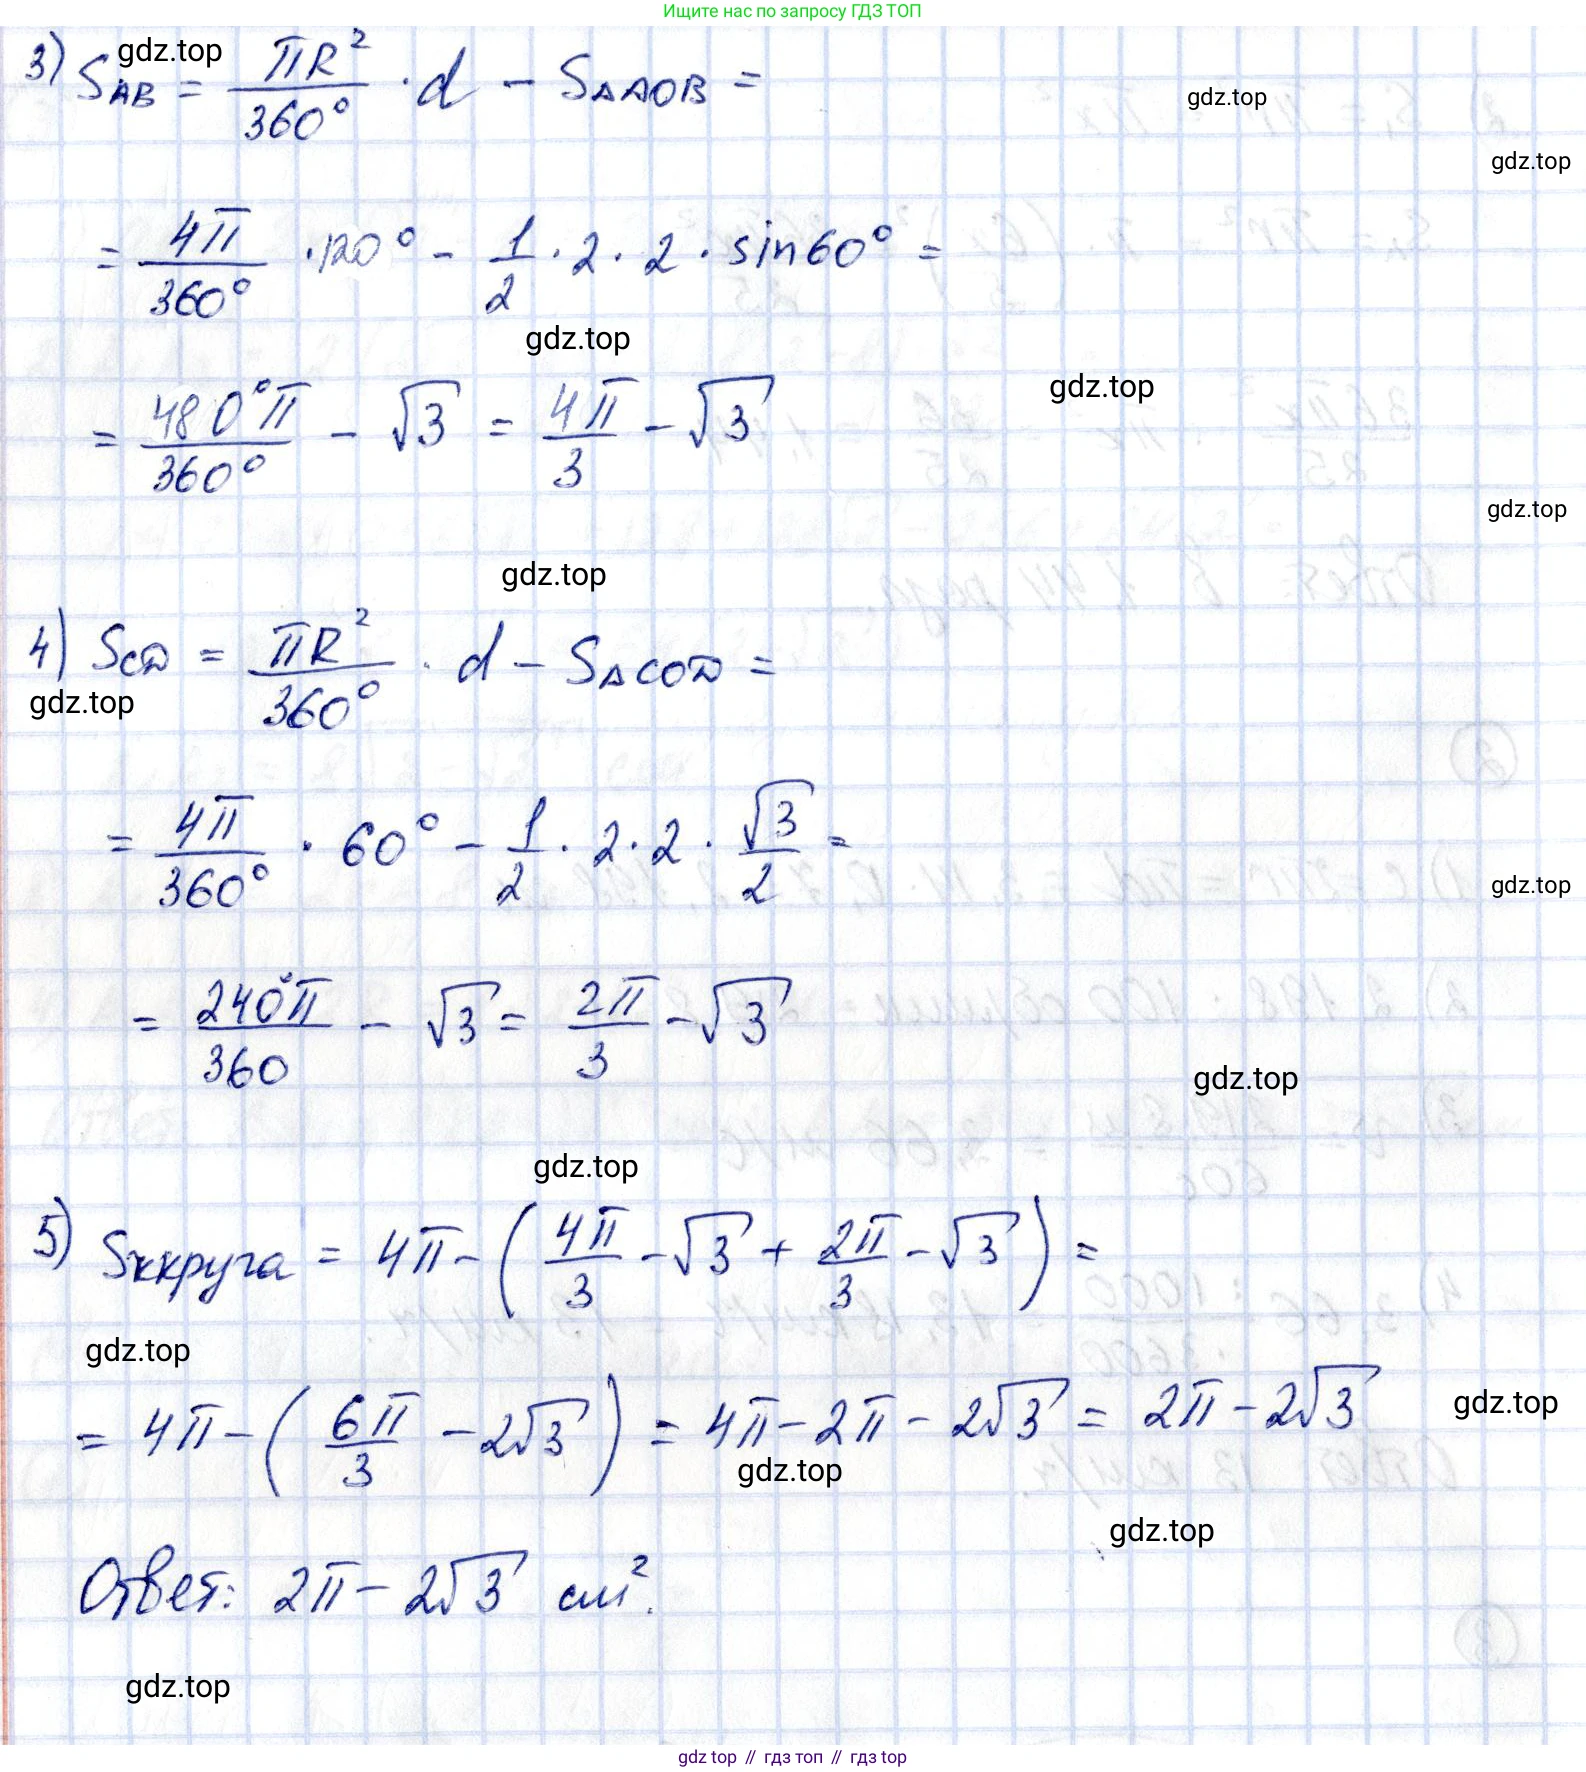 Ищите нас по запросу ГДЗ ТОП
gdz.top
3) S_AB = πR²/360° · d − S_ΔAOB =
gdz.top
gdz.top
= 4π/360° · 120° − 1/2 · 2 · 2 · sin60° =
gdz.top
gdz.top
= 480°π/360° − √3 = 4π/3 − √3
gdz.top
gdz.top
4) S_CD = πR²/360° · d − S_ΔCOD =
gdz.top
= 4π/360° · 60° − 1/2 · 2 · 2 · √3/2 =
gdz.top
= 240°π/360 − √3 = 2π/3 − √3
gdz.top
gdz.top
5) Sжкруга = 4π − (4π/3 − √3 + 2π/3 − √3) =
gdz.top
= 4π − (6π/3 − 2√3) = 4π − 2π − 2√3 = 2π − 2√3
gdz.top
gdz.top
gdz.top
Ответ: 2π − 2√3 см².
gdz.top
gdz top // гдз топ // гдз top